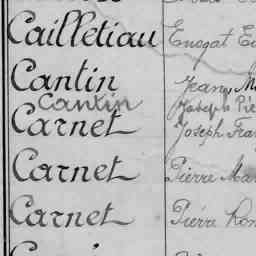 Cailletiau Enogat
Cantin Jean
Cantin Joseph Pie
Carnet Joseph Fran
Carnet Pierre Mar
Carnet Pierre